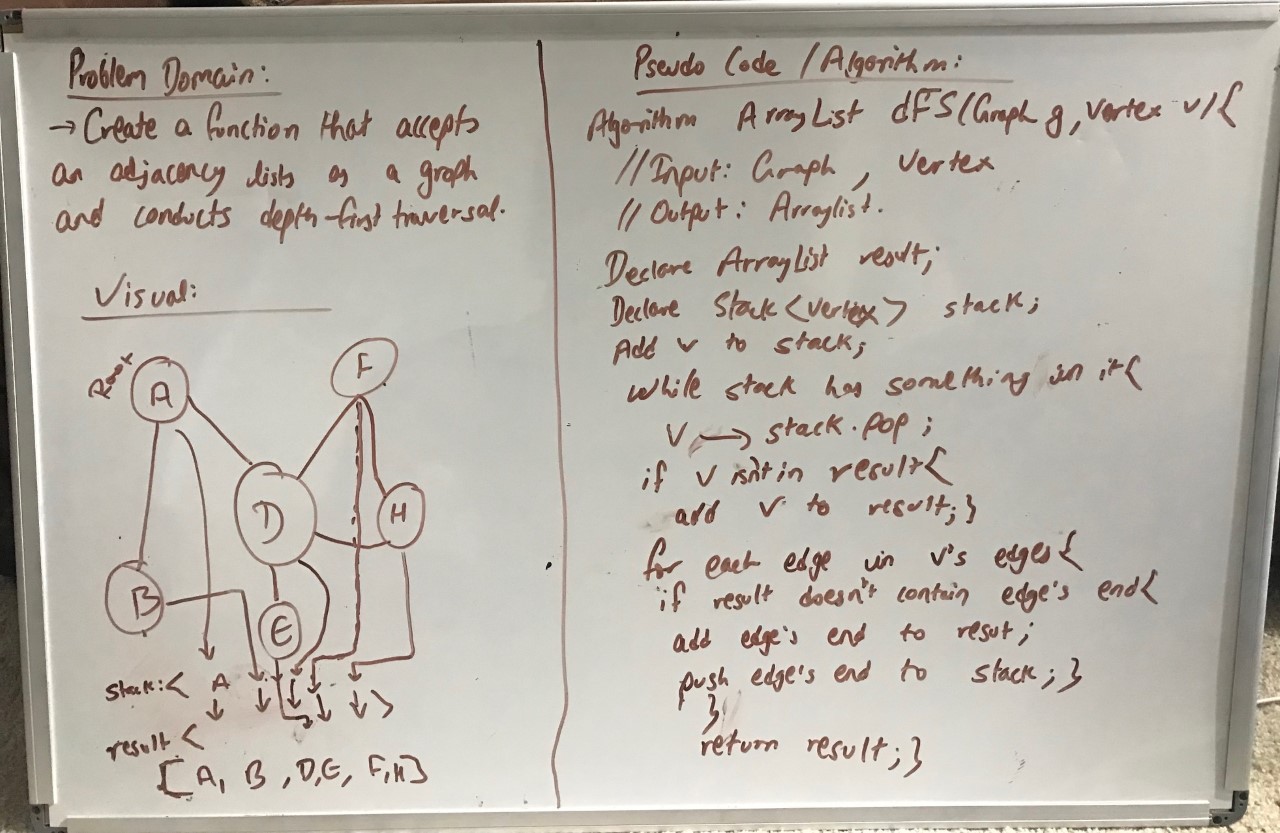 Problem Domain:
→ Create a function that accepts
an adjacency lists as a graph
and conducts depth-first traversal.
Visual:
Root
A
F
D
H
B
E
stack: { A }
result {
[A, B, D, E, F, H]
Pseudo Code / Algorithm:
Algorithm ArrayList dFS(Graph g, Vertex v){
//Input: Graph, Vertex
// Output: Arraylist.
Declare ArrayList result;
Declare Stack<Vertex> stack;
Add v to stack;
while stack has something in it{
V → stack.pop;
if V isn't in result{
add V to result;}
for each edge in V's edges{
if result doesn't contain edge's end{
add edge's end to resut;
push edge's end to stack;}
}
return result;}